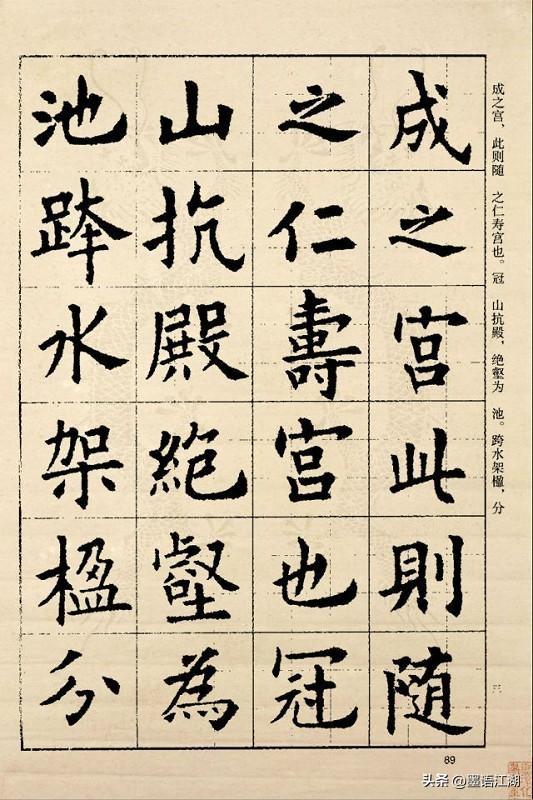 成之宫，此则随　之仁寿宫也。冠　山抗殿，绝壑为　池。跨水架楹，分
成之宫此則随
之仁壽宫也冠
山抗殿絶壑為
池跨水架楹分
三
89
头条 @墨语江湖